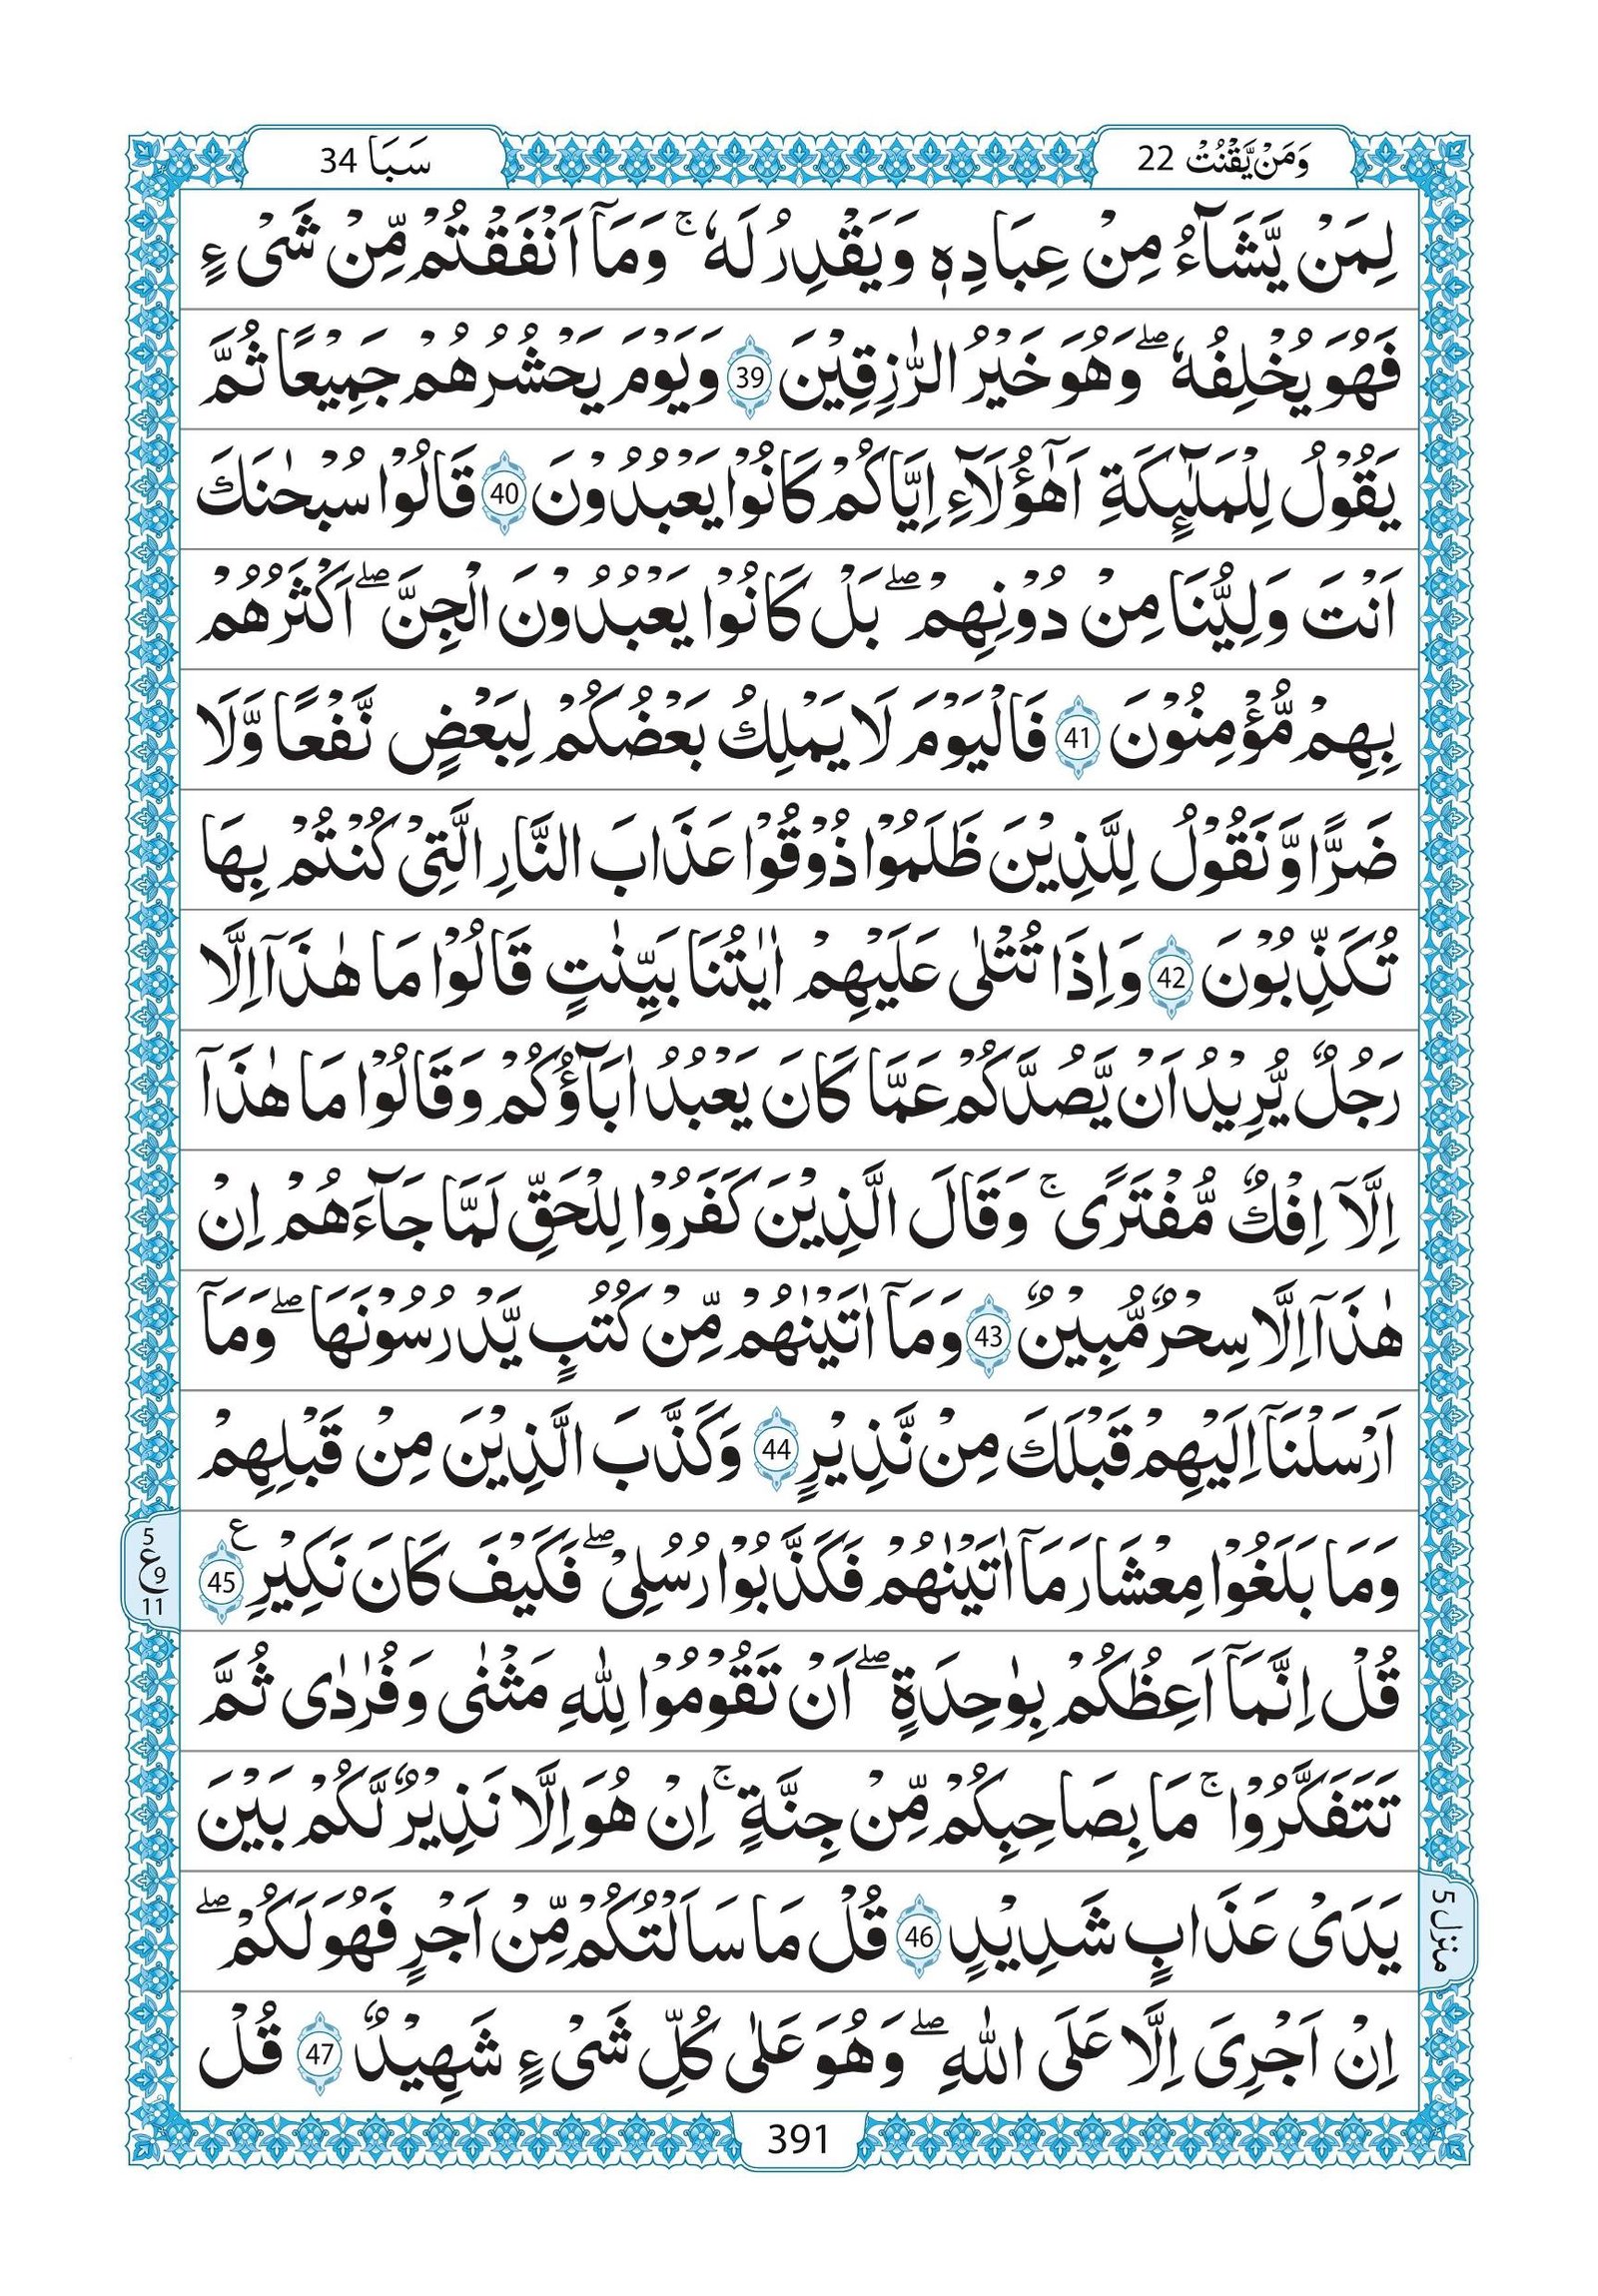 وَمَنْ يَّقْنُتْ 22
سَبَا 34
لِمَنْ يَّشَآءُ مِنْ عِبَادِهٖ وَيَقْدِرُ لَهٗ ۚ وَمَآ اَنْفَقْتُمْ مِّنْ شَىْءٍ
فَهُوَ يُخْلِفُهٗ ۖ وَهُوَ خَيْرُ الرّٰزِقِيْنَ 39 وَيَوْمَ يَحْشُرُهُمْ جَمِيْعًا ثُمَّ
يَقُوْلُ لِلْمَلٰٓئِكَةِ اَهٰٓؤُلَآءِ اِيَّاكُمْ كَانُوْا يَعْبُدُوْنَ 40 قَالُوْا سُبْحٰنَكَ
اَنْتَ وَلِيُّنَا مِنْ دُوْنِهِمْ ۖ بَلْ كَانُوْا يَعْبُدُوْنَ الْجِنَّ ۖ اَكْثَرُهُمْ
بِهِمْ مُّؤْمِنُوْنَ 41 فَالْيَوْمَ لَا يَمْلِكُ بَعْضُكُمْ لِبَعْضٍ نَّفْعًا وَّلَا
ضَرًّا وَّنَقُوْلُ لِلَّذِيْنَ ظَلَمُوْا ذُوْقُوْا عَذَابَ النَّارِ الَّتِىْ كُنْتُمْ بِهَا
تُكَذِّبُوْنَ 42 وَاِذَا تُتْلٰى عَلَيْهِمْ اٰيٰتُنَا بَيِّنٰتٍ قَالُوْا مَا هٰذَآ اِلَّا
رَجُلٌ يُّرِيْدُ اَنْ يَّصُدَّكُمْ عَمَّا كَانَ يَعْبُدُ اٰبَآؤُكُمْ وَقَالُوْا مَا هٰذَآ
اِلَّآ اِفْكٌ مُّفْتَرًى ۚ وَقَالَ الَّذِيْنَ كَفَرُوْا لِلْحَقِّ لَمَّا جَآءَهُمْ اِنْ
هٰذَآ اِلَّا سِحْرٌ مُّبِيْنٌ 43 وَمَآ اٰتَيْنٰهُمْ مِّنْ كُتُبٍ يَّدْرُسُوْنَهَا ۖ وَمَآ
اَرْسَلْنَآ اِلَيْهِمْ قَبْلَكَ مِنْ نَّذِيْرٍ 44 وَكَذَّبَ الَّذِيْنَ مِنْ قَبْلِهِمْ
وَمَا بَلَغُوْا مِعْشَارَ مَآ اٰتَيْنٰهُمْ فَكَذَّبُوْا رُسُلِىْ ۖ فَكَيْفَ كَانَ نَكِيْرِ ع 45
5
ع 9
11
قُلْ اِنَّمَآ اَعِظُكُمْ بِوٰحِدَةٍ ۖ اَنْ تَقُوْمُوْا لِلّٰهِ مَثْنٰى وَفُرٰدٰى ثُمَّ
تَتَفَكَّرُوْا ۚ مَا بِصَاحِبِكُمْ مِّنْ جِنَّةٍ ۚ اِنْ هُوَ اِلَّا نَذِيْرٌ لَّكُمْ بَيْنَ
يَدَىْ عَذَابٍ شَدِيْدٍ 46 قُلْ مَا سَاَلْتُكُمْ مِّنْ اَجْرٍ فَهُوَ لَكُمْ ۖ
منزل 5
اِنْ اَجْرِىَ اِلَّا عَلَى اللّٰهِ ۖ وَهُوَ عَلٰى كُلِّ شَىْءٍ شَهِيْدٌ 47 قُلْ
391